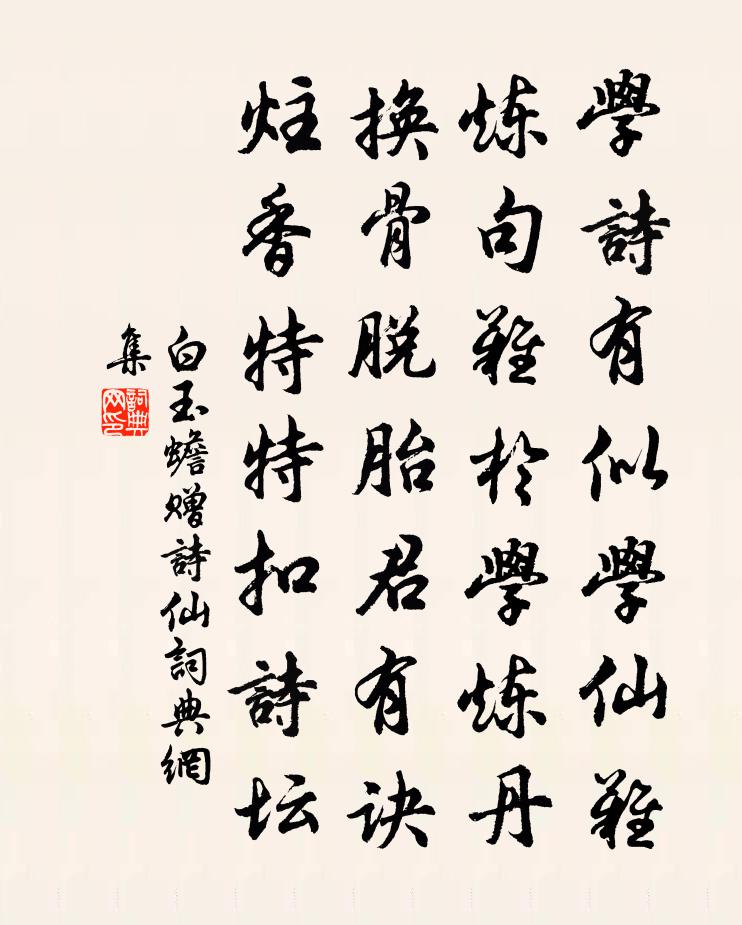 學詩有似學仙難
炼句難於學炼丹
換骨脱胎君有诀
炷香特特扣詩坛
白玉蟾赠詩仙詞典網
集
詞典
网印